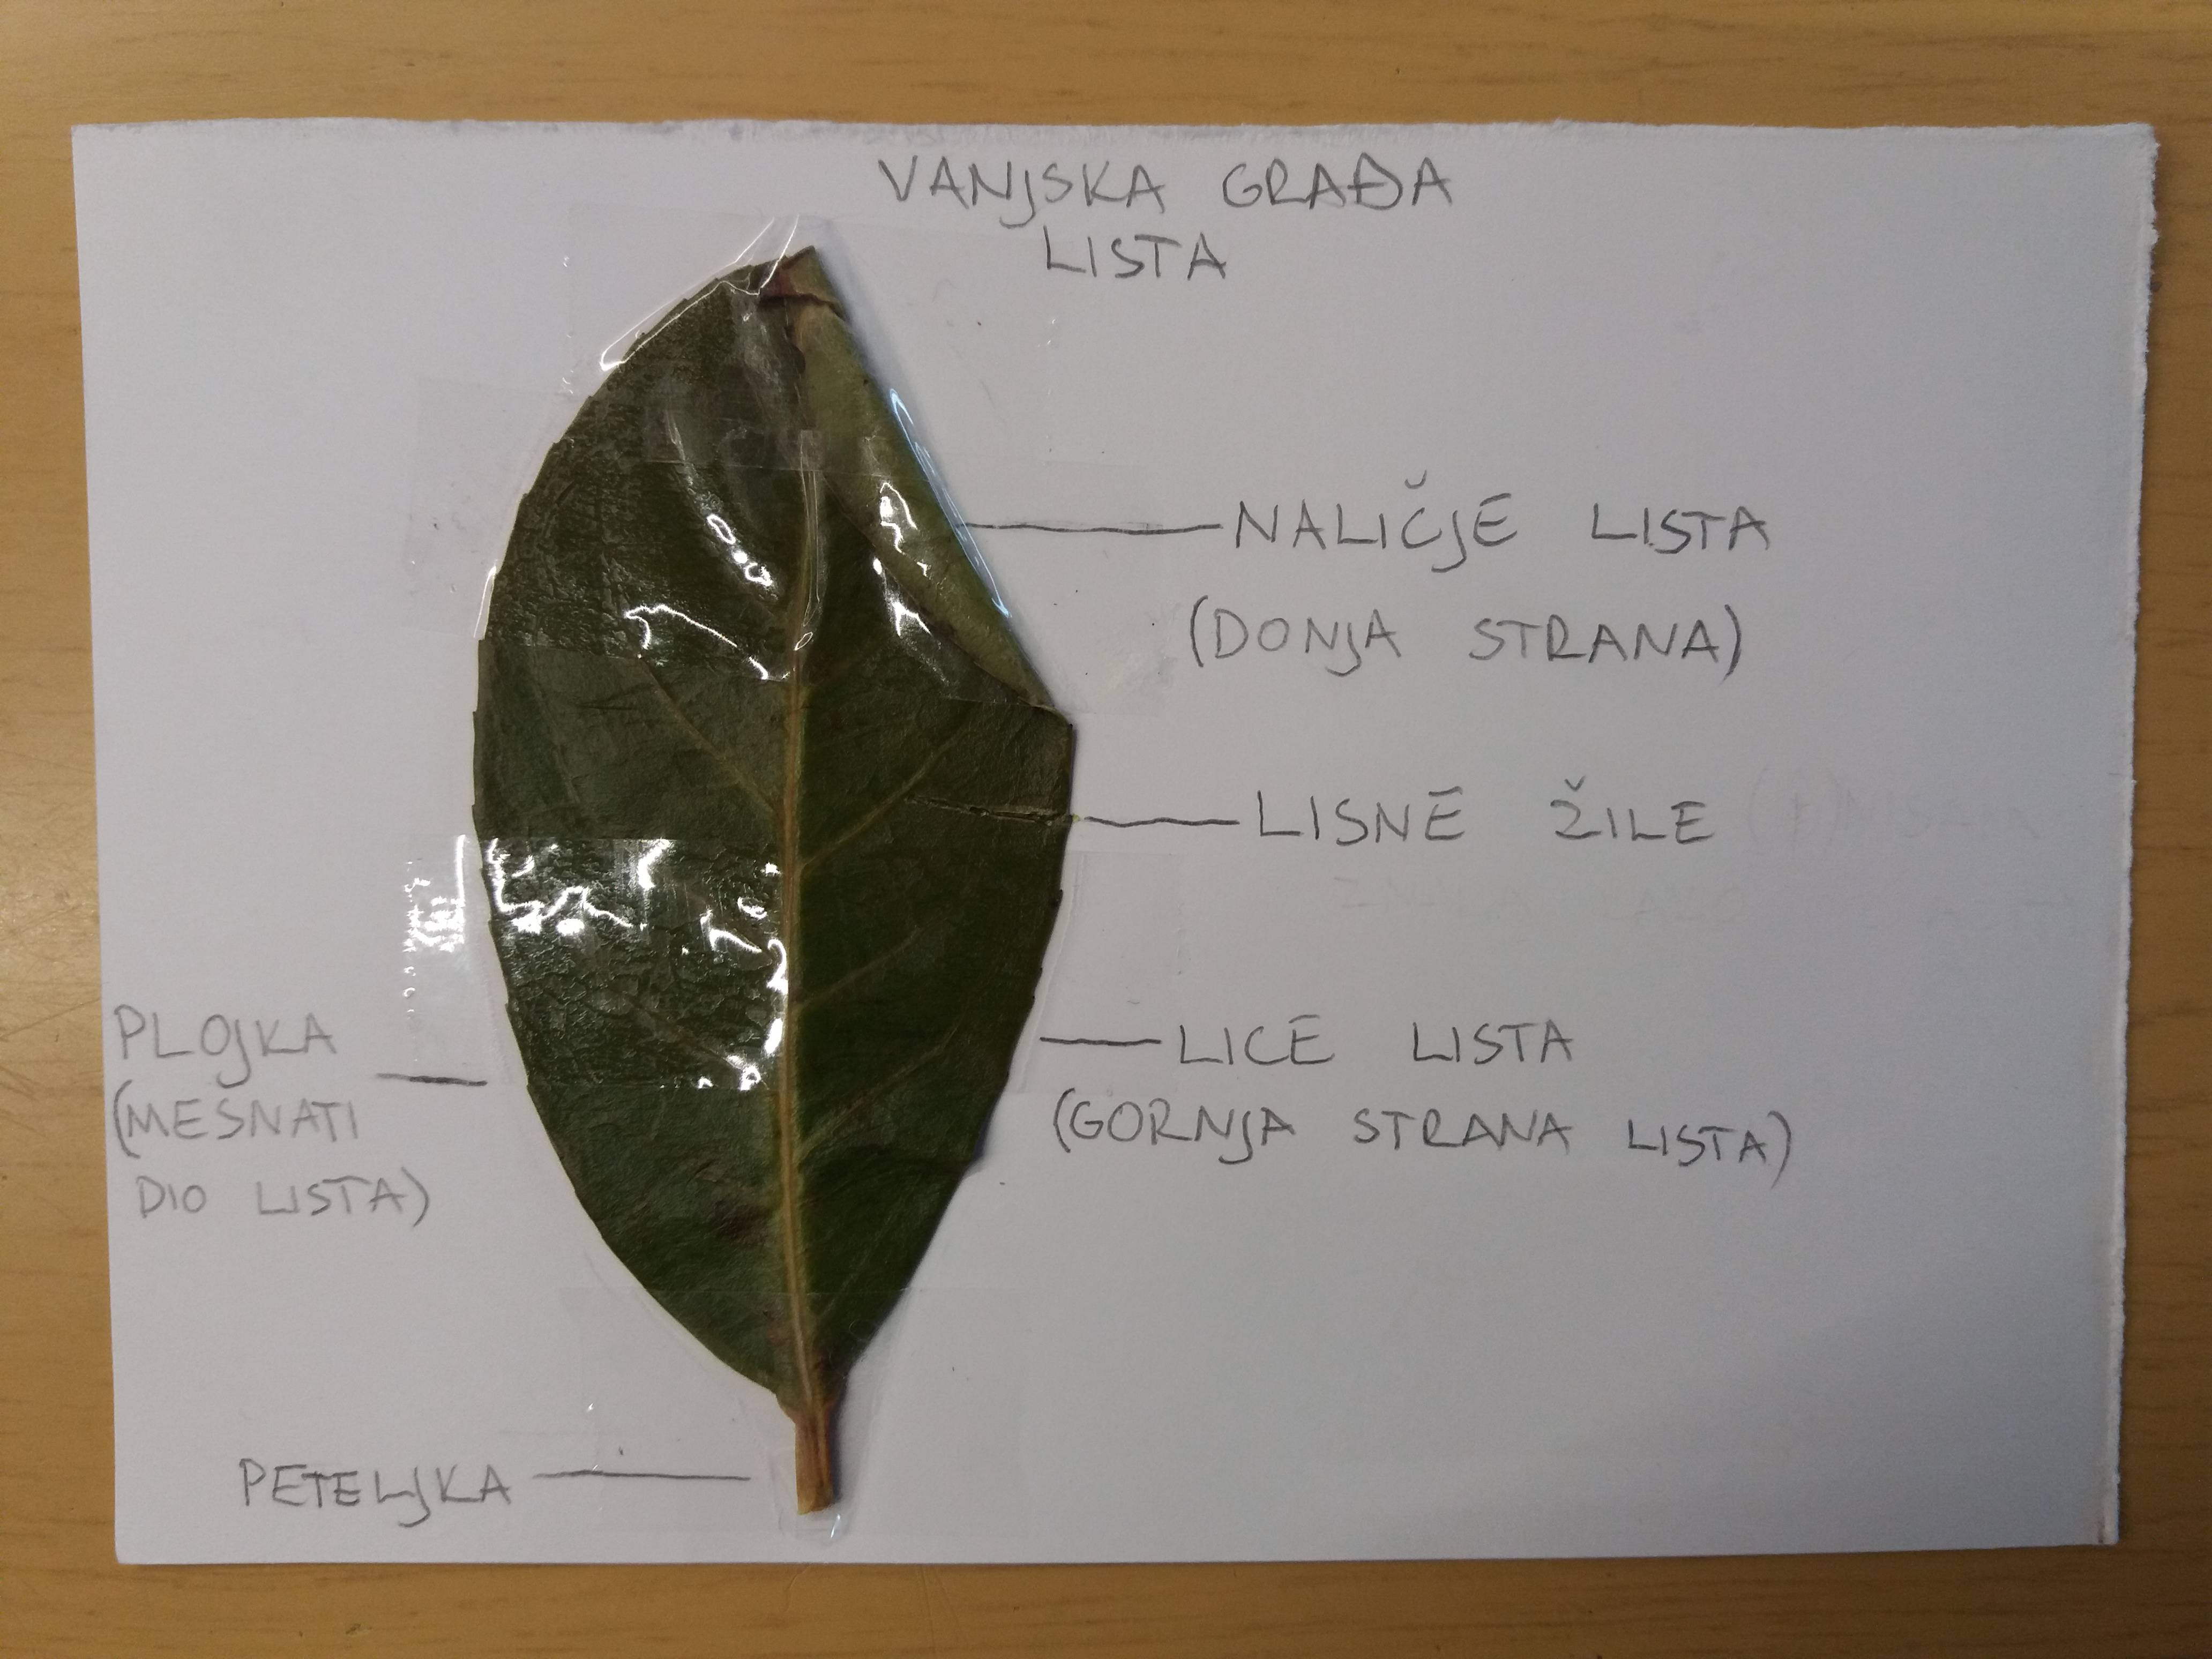 VANJSKA GRAĐA
LISTA
NALIČJE LISTA
(DONJA STRANA)
LISNE ŽILE
PLOJKA
(MESNATI
DIO LISTA)
LICE LISTA
(GORNJA STRANA LISTA)
PETELJKA